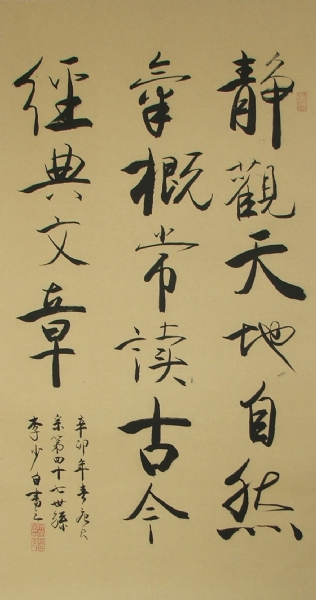 静觀天地自然
氣概常读古今
經典文章
辛卯年春唐太
宗第四十七世孫
李少白書之